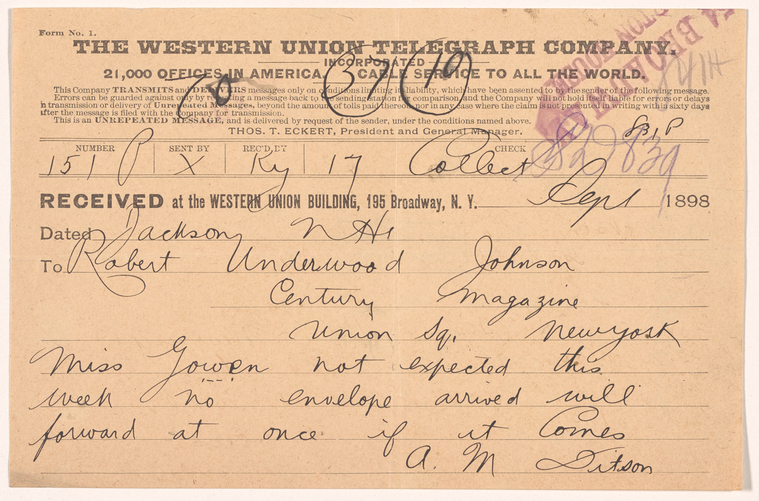 Form No. 1.
THE WESTERN UNION TELEGRAPH COMPANY.
INCORPORATED
21,000 OFFICES IN AMERICA. CABLE SERVICE TO ALL THE WORLD.
This Company TRANSMITS and DELIVERS messages only on conditions limiting its liability, which have been assented to by the sender of the following message.
Errors can be guarded against only by repeating a message back to the sending station for comparison, and the Company will not hold itself liable for errors or delays
in transmission or delivery of Unrepeated Messages, beyond the amount of tolls paid thereon, nor in any case where the claim is not presented in writing within sixty days
after the message is filed with the Company for transmission.
This is an UNREPEATED MESSAGE, and is delivered by request of the sender, under the conditions named above.
THOS. T. ECKERT, President and General Manager.
NUMBER SENT BY REC'D BY CHECK
151 P X Ky 17 Collect
RECEIVED at the WESTERN UNION BUILDING, 195 Broadway, N. Y. Sept 1898
Dated Jackson N H
To Robert Underwood Johnson
Century Magazine
Union Sq. New York
Miss Gowen not expected this
week no envelope arrived will
forward at once if it Comes
A. M Ditson